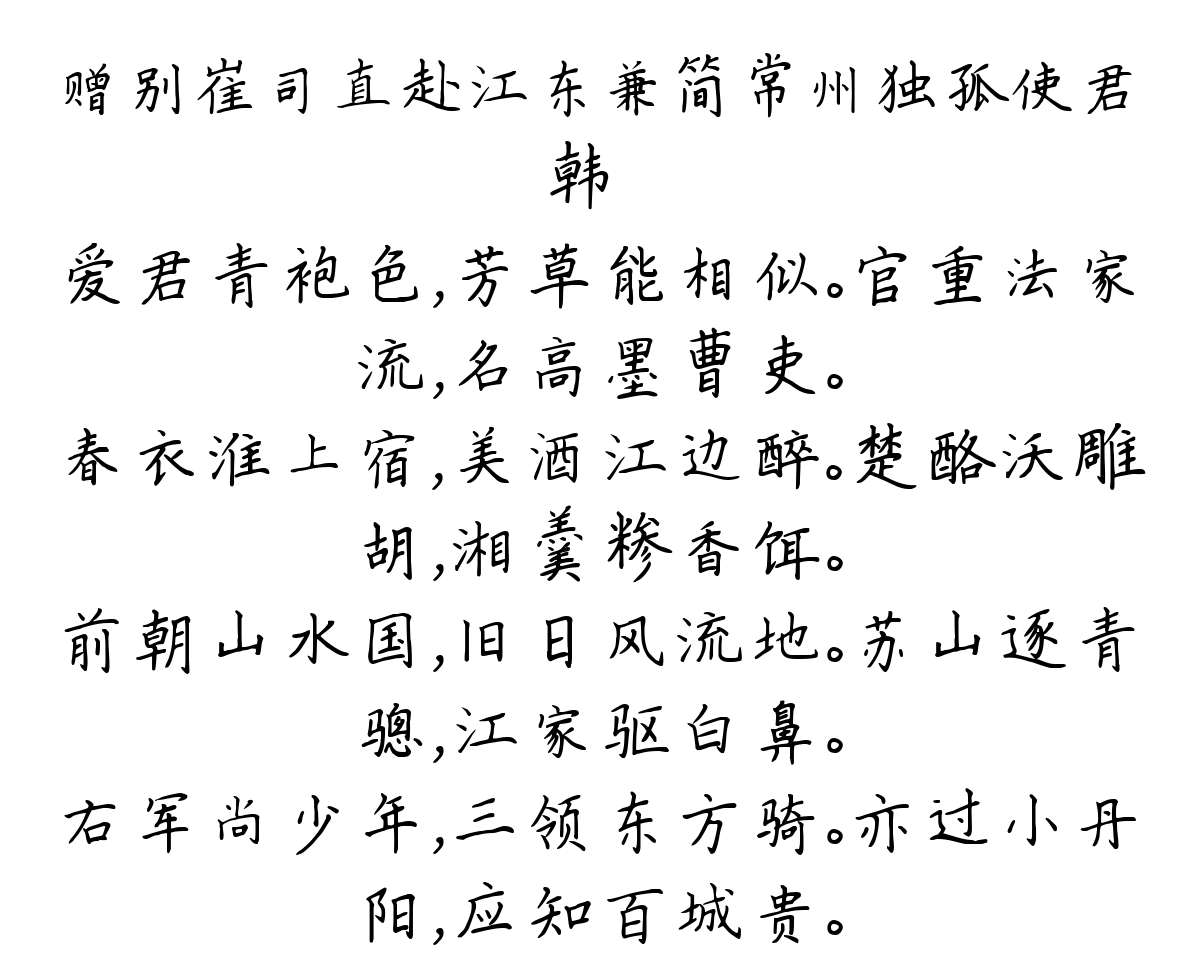 赠别崔司直赴江东兼简常州独孤使君
韩
爱君青袍色,芳草能相似。官重法家
流,名高墨曹吏。
春衣淮上宿,美酒江边醉。楚酪沃雕
胡,湘羹糁香饵。
前朝山水国,旧日风流地。苏山逐青
骢,江家驱白鼻。
右军尚少年,三领东方骑。亦过小丹
阳,应知百城贵。